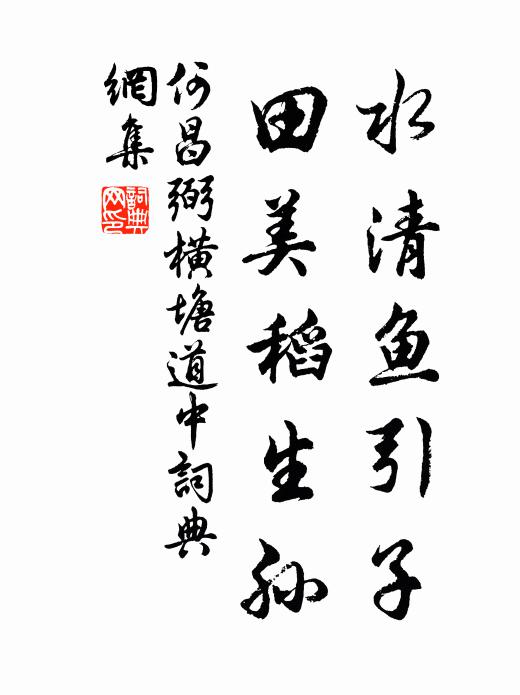 水清鱼引子
田美稻生孙
何昌弼横塘道中詞典
網集
詞典网印